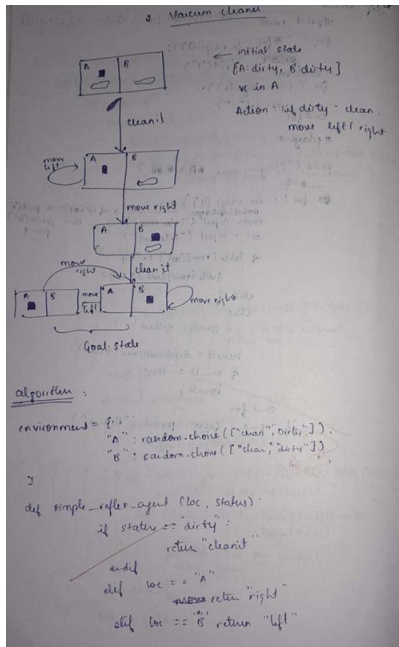 2. Vacuum cleaner
initial state
A B
[A:dirty, B:dirty]
vc in A
Action: if dirty: clean.
move left/right
clean it
move left
A B
move right
A B
clean it
move right
A B
move left
A B
move right
Goal state
algorithm:
environment = {
"A": random.choice(["clean", "Dirty"]),
"B": random.choice(["clean", "dirty"])
}
def simple_reflex_agent (loc, status):
if status == "dirty":
return "cleanit"
endif
elif loc == "A"
return "right"
elif loc == "B" return "left"